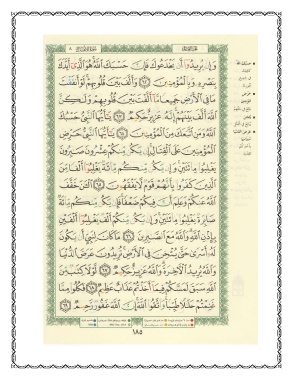 وَإِن يُرِيدُوٓا۟ أَن يَخْدَعُوكَ فَإِنَّ حَسْبَكَ ٱللَّهُ هُوَ ٱلَّذِىٓ أَيَّدَكَ
بِنَصْرِهِۦ وَبِٱلْمُؤْمِنِينَ ٦٢ وَأَلَّفَ بَيْنَ قُلُوبِهِمْ لَوْ أَنفَقْتَ
مَا فِى ٱلْأَرْضِ جَمِيعًا مَّآ أَلَّفْتَ بَيْنَ قُلُوبِهِمْ وَلَٰكِنَّ
ٱللَّهَ أَلَّفَ بَيْنَهُمْ إِنَّهُۥ عَزِيزٌ حَكِيمٌ ٦٣ يَٰٓأَيُّهَا ٱلنَّبِىُّ حَسْبُكَ
ٱللَّهُ وَمَنِ ٱتَّبَعَكَ مِنَ ٱلْمُؤْمِنِينَ ٦٤ يَٰٓأَيُّهَا ٱلنَّبِىُّ حَرِّضِ
ٱلْمُؤْمِنِينَ عَلَى ٱلْقِتَالِ إِن يَكُن مِّنكُمْ عِشْرُونَ صَٰبِرُونَ
يَغْلِبُوا۟ مِا۟ئَتَيْنِ وَإِن يَكُن مِّنكُم مِّا۟ئَةٌ يَغْلِبُوٓا۟ أَلْفًا مِّنَ
ٱلَّذِينَ كَفَرُوا۟ بِأَنَّهُمْ قَوْمٌ لَّا يَفْقَهُونَ ٦٥ ٱلْـَٰٔنَ خَفَّفَ
ٱللَّهُ عَنكُمْ وَعَلِمَ أَنَّ فِيكُمْ ضَعْفًا فَإِن يَكُن مِّنكُم مِّا۟ئَةٌ
صَابِرَةٌ يَغْلِبُوا۟ مِا۟ئَتَيْنِ وَإِن يَكُن مِّنكُمْ أَلْفٌ يَغْلِبُوٓا۟ أَلْفَيْنِ
بِإِذْنِ ٱللَّهِ وَٱللَّهُ مَعَ ٱلصَّٰبِرِينَ ٦٦ مَا كَانَ لِنَبِىٍّ أَن يَكُونَ
لَهُۥٓ أَسْرَىٰ حَتَّىٰ يُثْخِنَ فِى ٱلْأَرْضِ تُرِيدُونَ عَرَضَ ٱلدُّنْيَا
وَٱللَّهُ يُرِيدُ ٱلْـَٔاخِرَةَ وَٱللَّهُ عَزِيزٌ حَكِيمٌ ٦٧ لَّوْلَا كِتَٰبٌ مِّنَ
ٱللَّهِ سَبَقَ لَمَسَّكُمْ فِيمَآ أَخَذْتُمْ عَذَابٌ عَظِيمٌ ٦٨ فَكُلُوا۟ مِمَّا
غَنِمْتُمْ حَلَٰلًا طَيِّبًا وَٱتَّقُوا۟ ٱللَّهَ إِنَّ ٱللَّهَ غَفُورٌ رَّحِيمٌ ٦٩
١٨٥